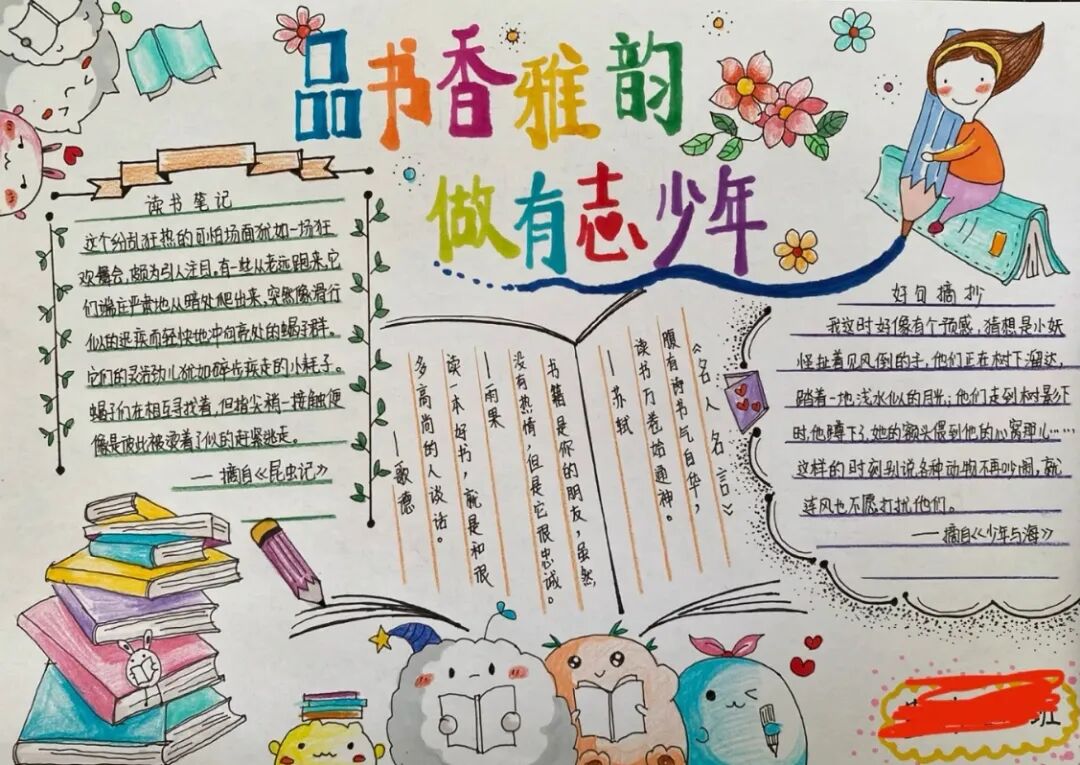 品书香雅韵
做有志少年
读书笔记
这个纷乱狂热的可怕场面犹如一场狂
欢舞会,颇为引人注目。有一些从老远跑来,它
们端庄严肃地从暗处爬出来,突然像滑行
似的迅疾而轻快地冲向亮处的蝎子群。
它们的灵活劲儿犹如碎步疾走的小耗子。
蝎子们在相互寻找着,但指尖稍一接触便
像是彼此被烫着了似的赶紧逃走。
——摘自《昆虫记》
《名人名言》
腹有诗书气自华,
读书万卷始通神。
——苏轼
书籍是你的朋友,虽然
没有热情,但是它很忠诚。
——雨果
读一本好书,就是和很
多高尚的人谈话。
——歌德
好句摘抄
我这时好像有个预感,猜想是小妖
怪扯着见风倒的手,他们正在树下溜达,
踏着一地浅水似的月光;他们走到树影下
时,他蹲下了,她的额头偎到他的心窝那儿……
这样的时刻别说各种动物不再吵闹,就
连风也不愿打扰他们。
——摘自《少年与海》
班